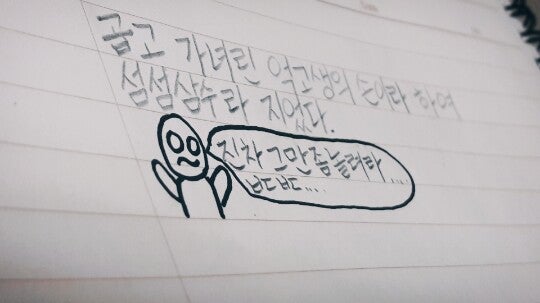 곱고 가녀린 여고생의 손이라 하여
섬섬삼수라 지었다.
진자 그만좀놀려라....
ㅂㄷㅂㄷ....